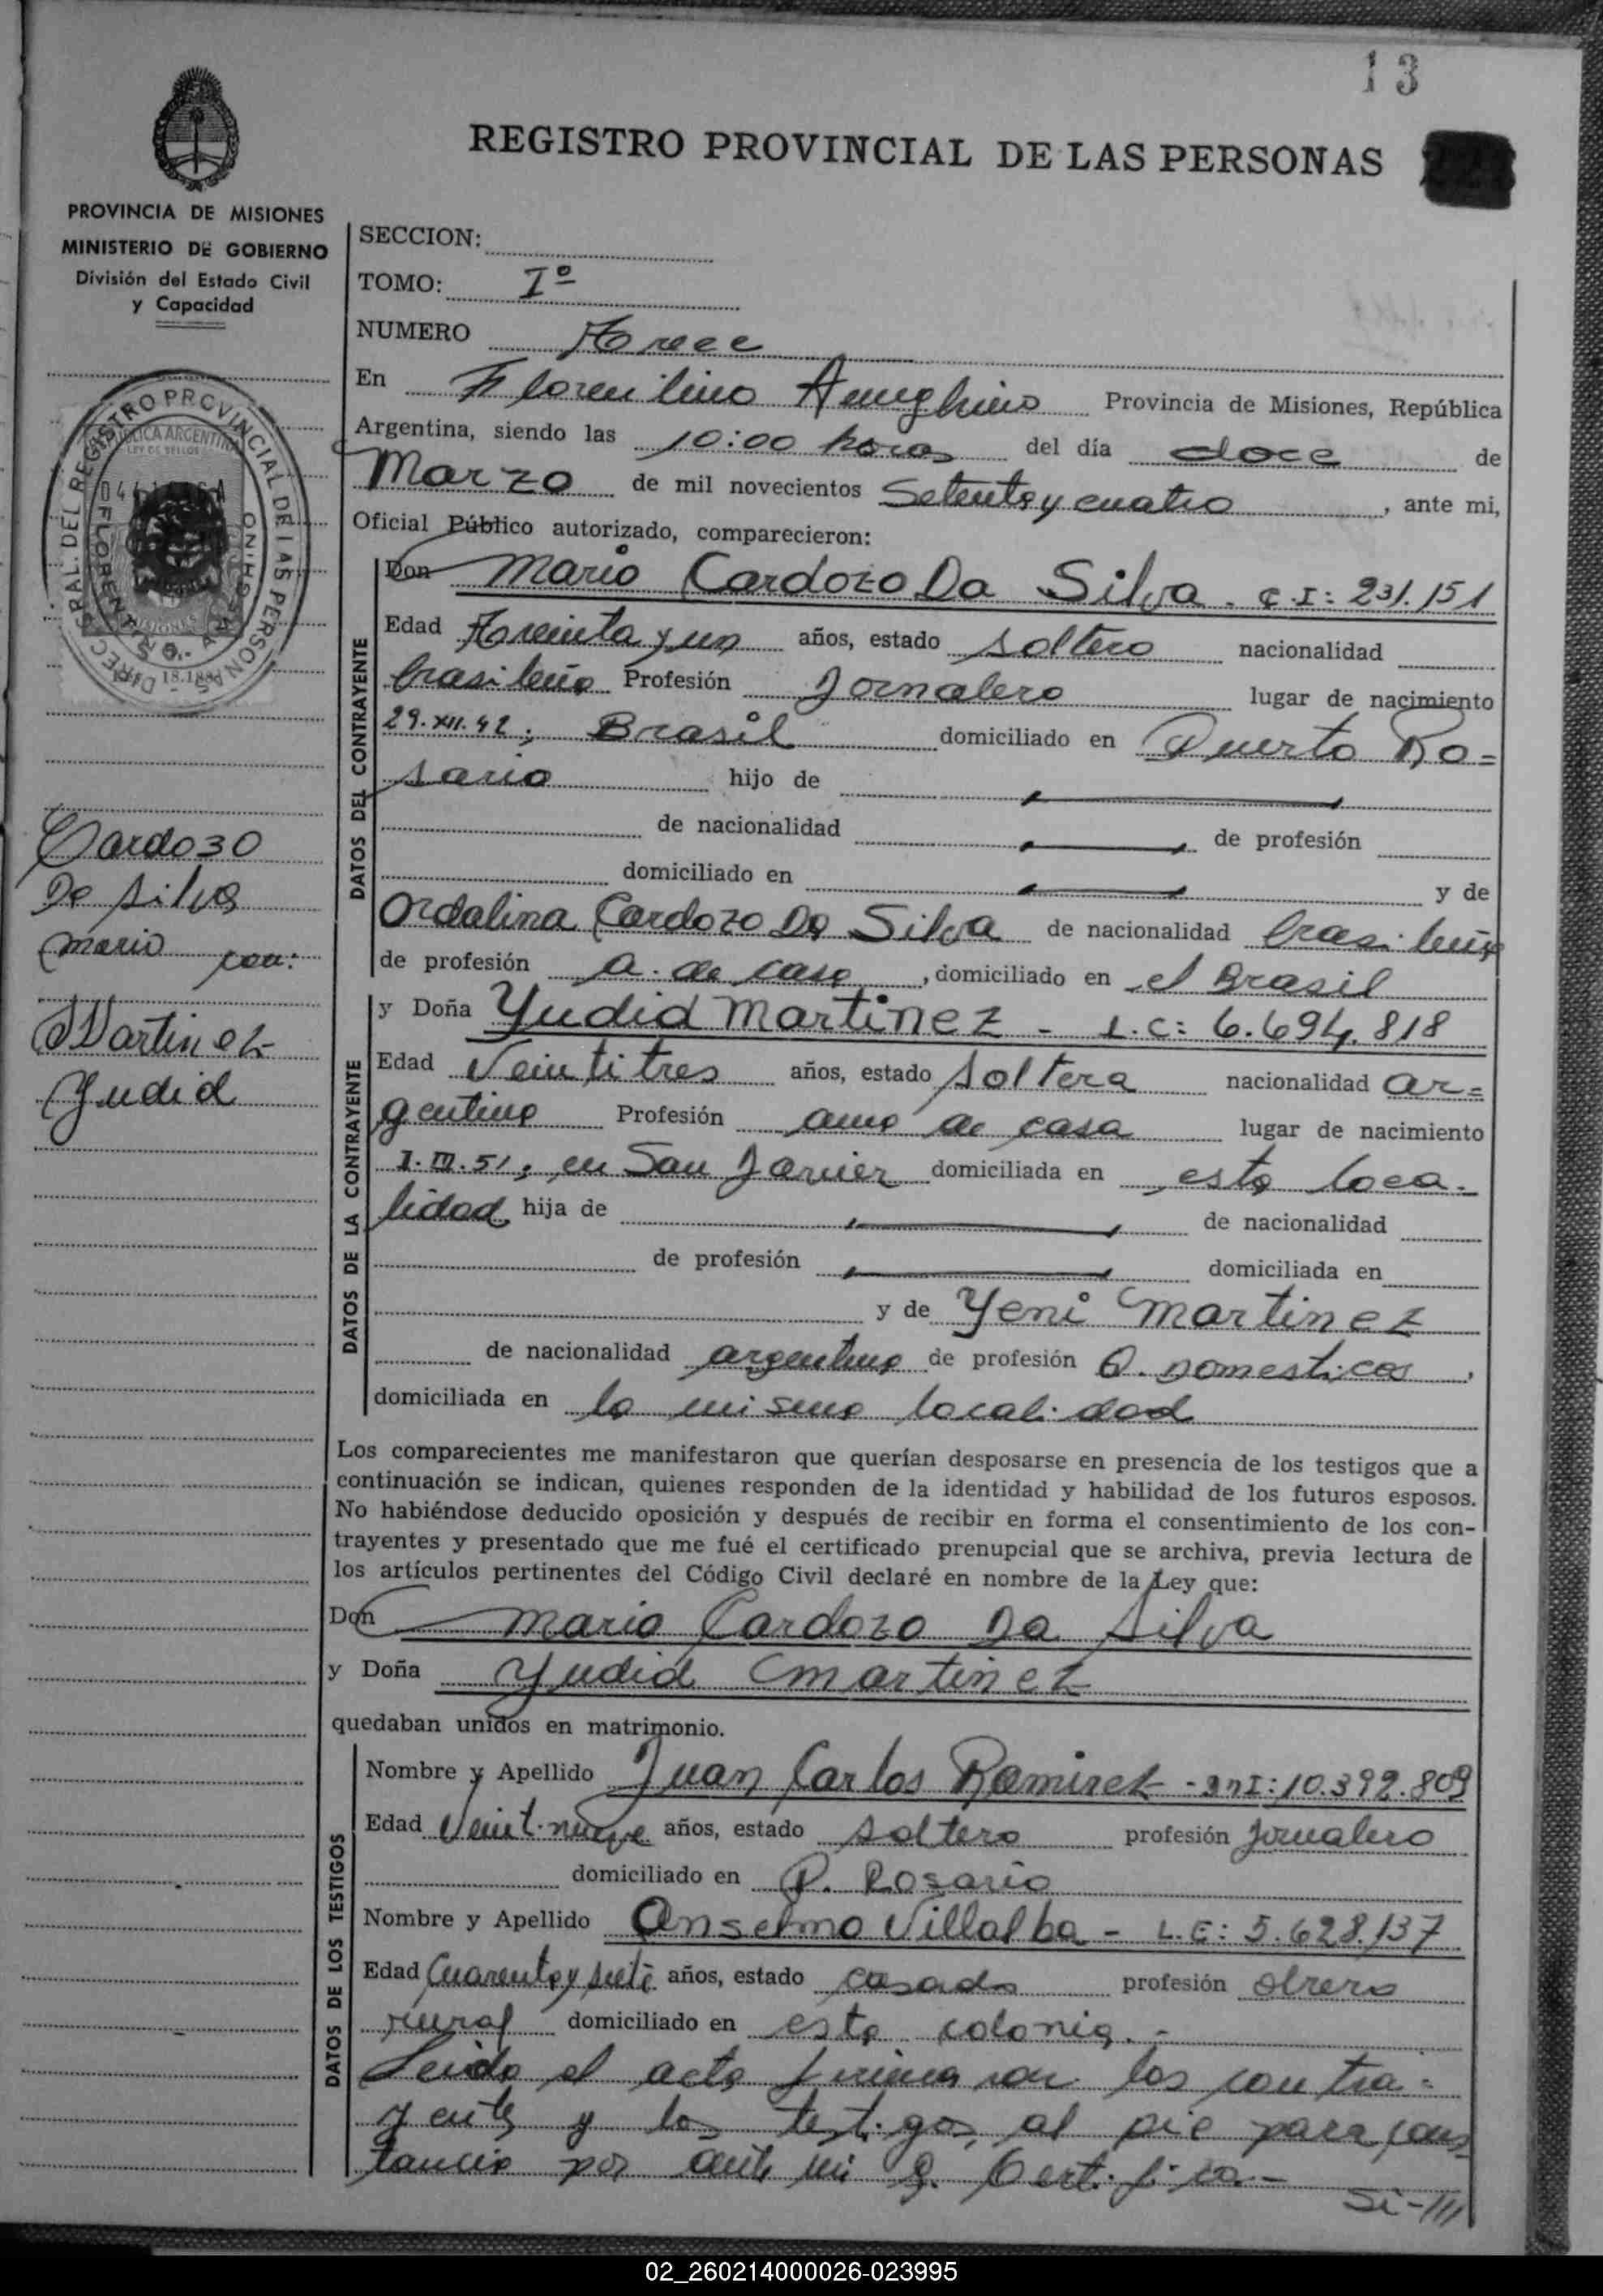 13
REGISTRO PROVINCIAL DE LAS PERSONAS
PROVINCIA DE MISIONES
MINISTERIO DE GOBIERNO
División del Estado Civil
y Capacidad
SECCION:
TOMO: Iº
NUMERO Trece
En Florentino Ameghino Provincia de Misiones, República
Argentina, siendo las 10:00 horas del día doce de
Marzo de mil novecientos Setenta y cuatro, ante mi,
Oficial Público autorizado, comparecieron:
DATOS DEL CONTRAYENTE
Don Mario Cardozo Da Silva - C.I: 231.151
Edad Treinta y un años, estado soltero nacionalidad
brasileña Profesión Jornalero lugar de nacimiento
29.XII.42; Brasil domiciliado en Puerto Ro=
sario hijo de
de nacionalidad de profesión
domiciliado en y de
Ordalina Cardozo Da Silva de nacionalidad brasileña
de profesión a. de casa, domiciliado en el Brasil
Cardozo
Da Silva
Mario con:
Martinez
Yudid
DATOS DE LA CONTRAYENTE
y Doña Yudid Martinez - L.C: 6.694.818
Edad Veintitres años, estado soltera nacionalidad ar=
gentina Profesión ama de casa lugar de nacimiento
1.III.51; en San Javier domiciliada en esta loca-
lidad hija de de nacionalidad
de profesión domiciliada en
y de Yeni Martinez
de nacionalidad argentina de profesión Q. Domesticos,
domiciliada en la misma localidad
Los comparecientes me manifestaron que querían desposarse en presencia de los testigos que a
continuación se indican, quienes responden de la identidad y habilidad de los futuros esposos.
No habiéndose deducido oposición y después de recibir en forma el consentimiento de los con-
trayentes y presentado que me fué el certificado prenupcial que se archiva, previa lectura de
los artículos pertinentes del Código Civil declaré en nombre de la Ley que:
Don Mario Cardozo Da Silva
y Doña Yudid Martinez
quedaban unidos en matrimonio.
DATOS DE LOS TESTIGOS
Nombre y Apellido Juan Carlos Ramirez - DNI: 10.392.809
Edad Veintinueve años, estado soltero profesión Jornalero
domiciliado en P. Rosario
Nombre y Apellido Anselmo Villalba - L.E: 5.628.137
Edad Cuarenta y siete años, estado casado profesión obrero
rural domiciliado en esta colonia. -
Leida el acta firmaron los contra-
yentes y los testigos, al pie para cons
tancia por ante mi q. Certifico.-
Si-///
02_260214000026-023995